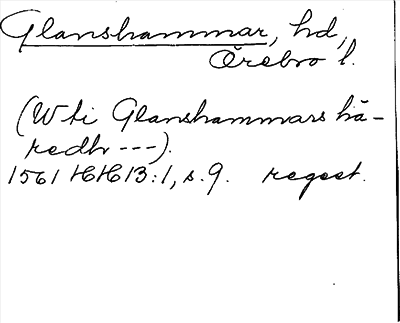 Glanshammar, hd,
Örebro l.
(Wti Glanshammars hä-
redh ---).
1561 HH 13:1, s. 9. regest.